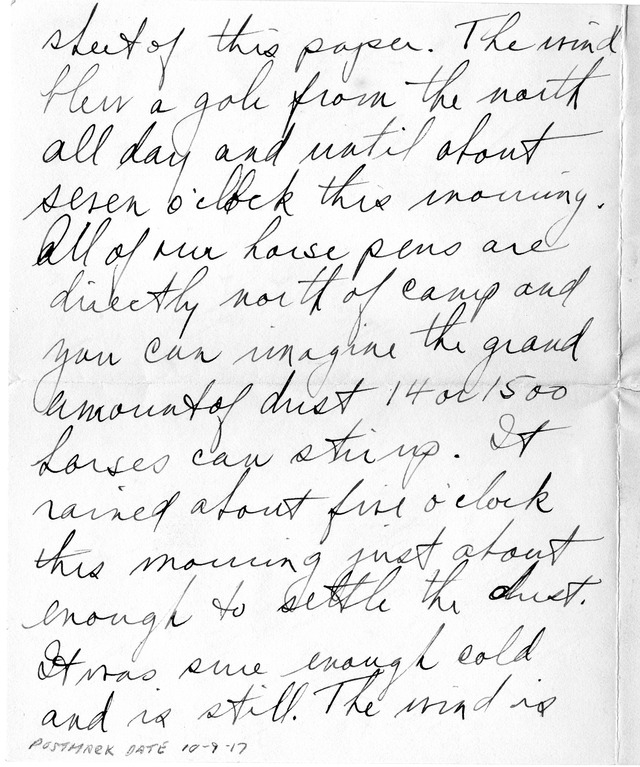 sheet of this paper. The wind
blew a gale from the north
all day and until about
seven o'clock this morning.
All of our horse pens are
directly north of camp and
you can imagine the grand
amount of dust 14 or 1500
horses can stir up. It
rained about five o'clock
this morning just about
enough to settle the dust.
It was sure enough cold
and is still. The wind is
POSTMARK DATE 10-9-17